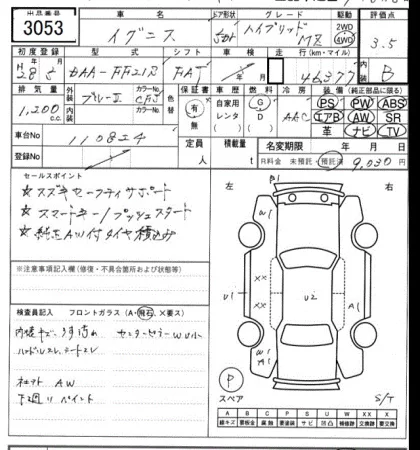 出品番号 車名 ドア形状 グレード 駆動 評価点
3053 イグニス 5D ハイブリッド MX 2WD 4WD 3.5
初度登録 型式 シフト 車検 走行(km・マイル) 内装
H28 5 DAA-FF21S FAT 46377 B
排気量 外装 カラーNo. 色替 保証書 車歴 燃料 冷房 装備(純正部品に限る)
1,200 c.c. ブルーII カラーNo. 有 無 自家用 レンタ G D AAC PS PW ABS
エアB AW SR
革 ナビ TV
車台No 110824 定員 人 積載量 t 名変期限 年 月 日
登録No R料金 未預託・預託済 9,030 円
セールスポイント
☆スズキセーフティサポート
☆スマートキー/プッシュスタート
☆純正AW付タイヤ積込み
※注意事項記入欄(修復・不具合箇所および状態等)
検査員記入 フロントガラス(A・飛石・X要ス)
内装キズ・うす汚れ センターピラーWU小
ハンドルスレ、シートスレ
社外AW
下廻りペイント
左 右
B1
W1
U1
XX XX
U2
A1
W2
A1
P
スペア
S/T
A B C P S U W XX X
線キズ 要板金 腐蝕 要塗装 サビ 凹 補修跡 交換跡 要交換